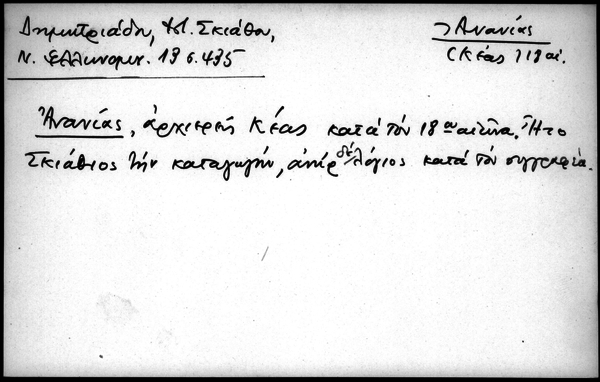 Δημητριάδου, Μ. Σκιάθου,
Ν. Ελληνομν. 13 σ. 435
Ἀνανίας
(Κέας 18 αἰ.
Ἀνανίας, ἀρχιερεὺς Κέας κατὰ τὸν 18ον αἰῶνα. Ἦτο
Σκιάθιος τὴν καταγωγήν, ἀνὴρ δὲ λόγιος κατὰ τὸν συγγραφέα.